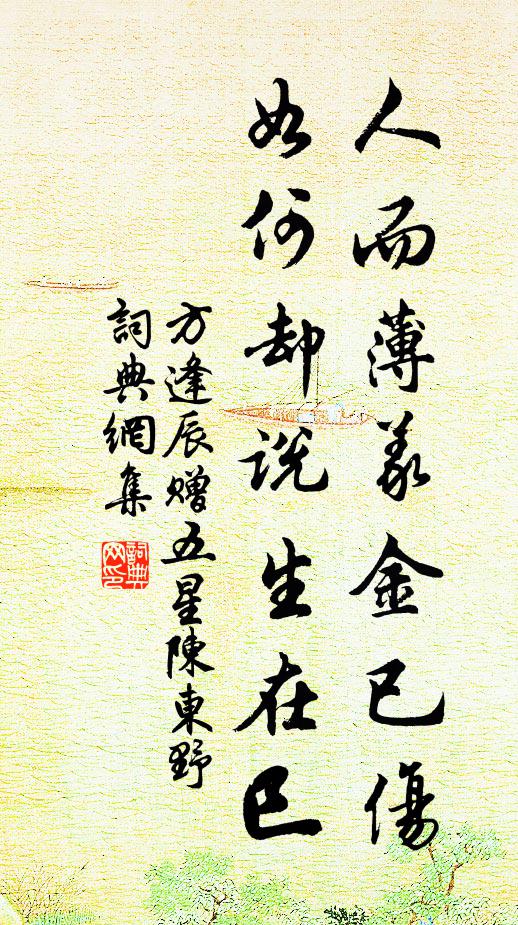 人而薄義金已傷
如何却説生在巳
方逢辰贈五星陳東野
詞典網集
詞典网印